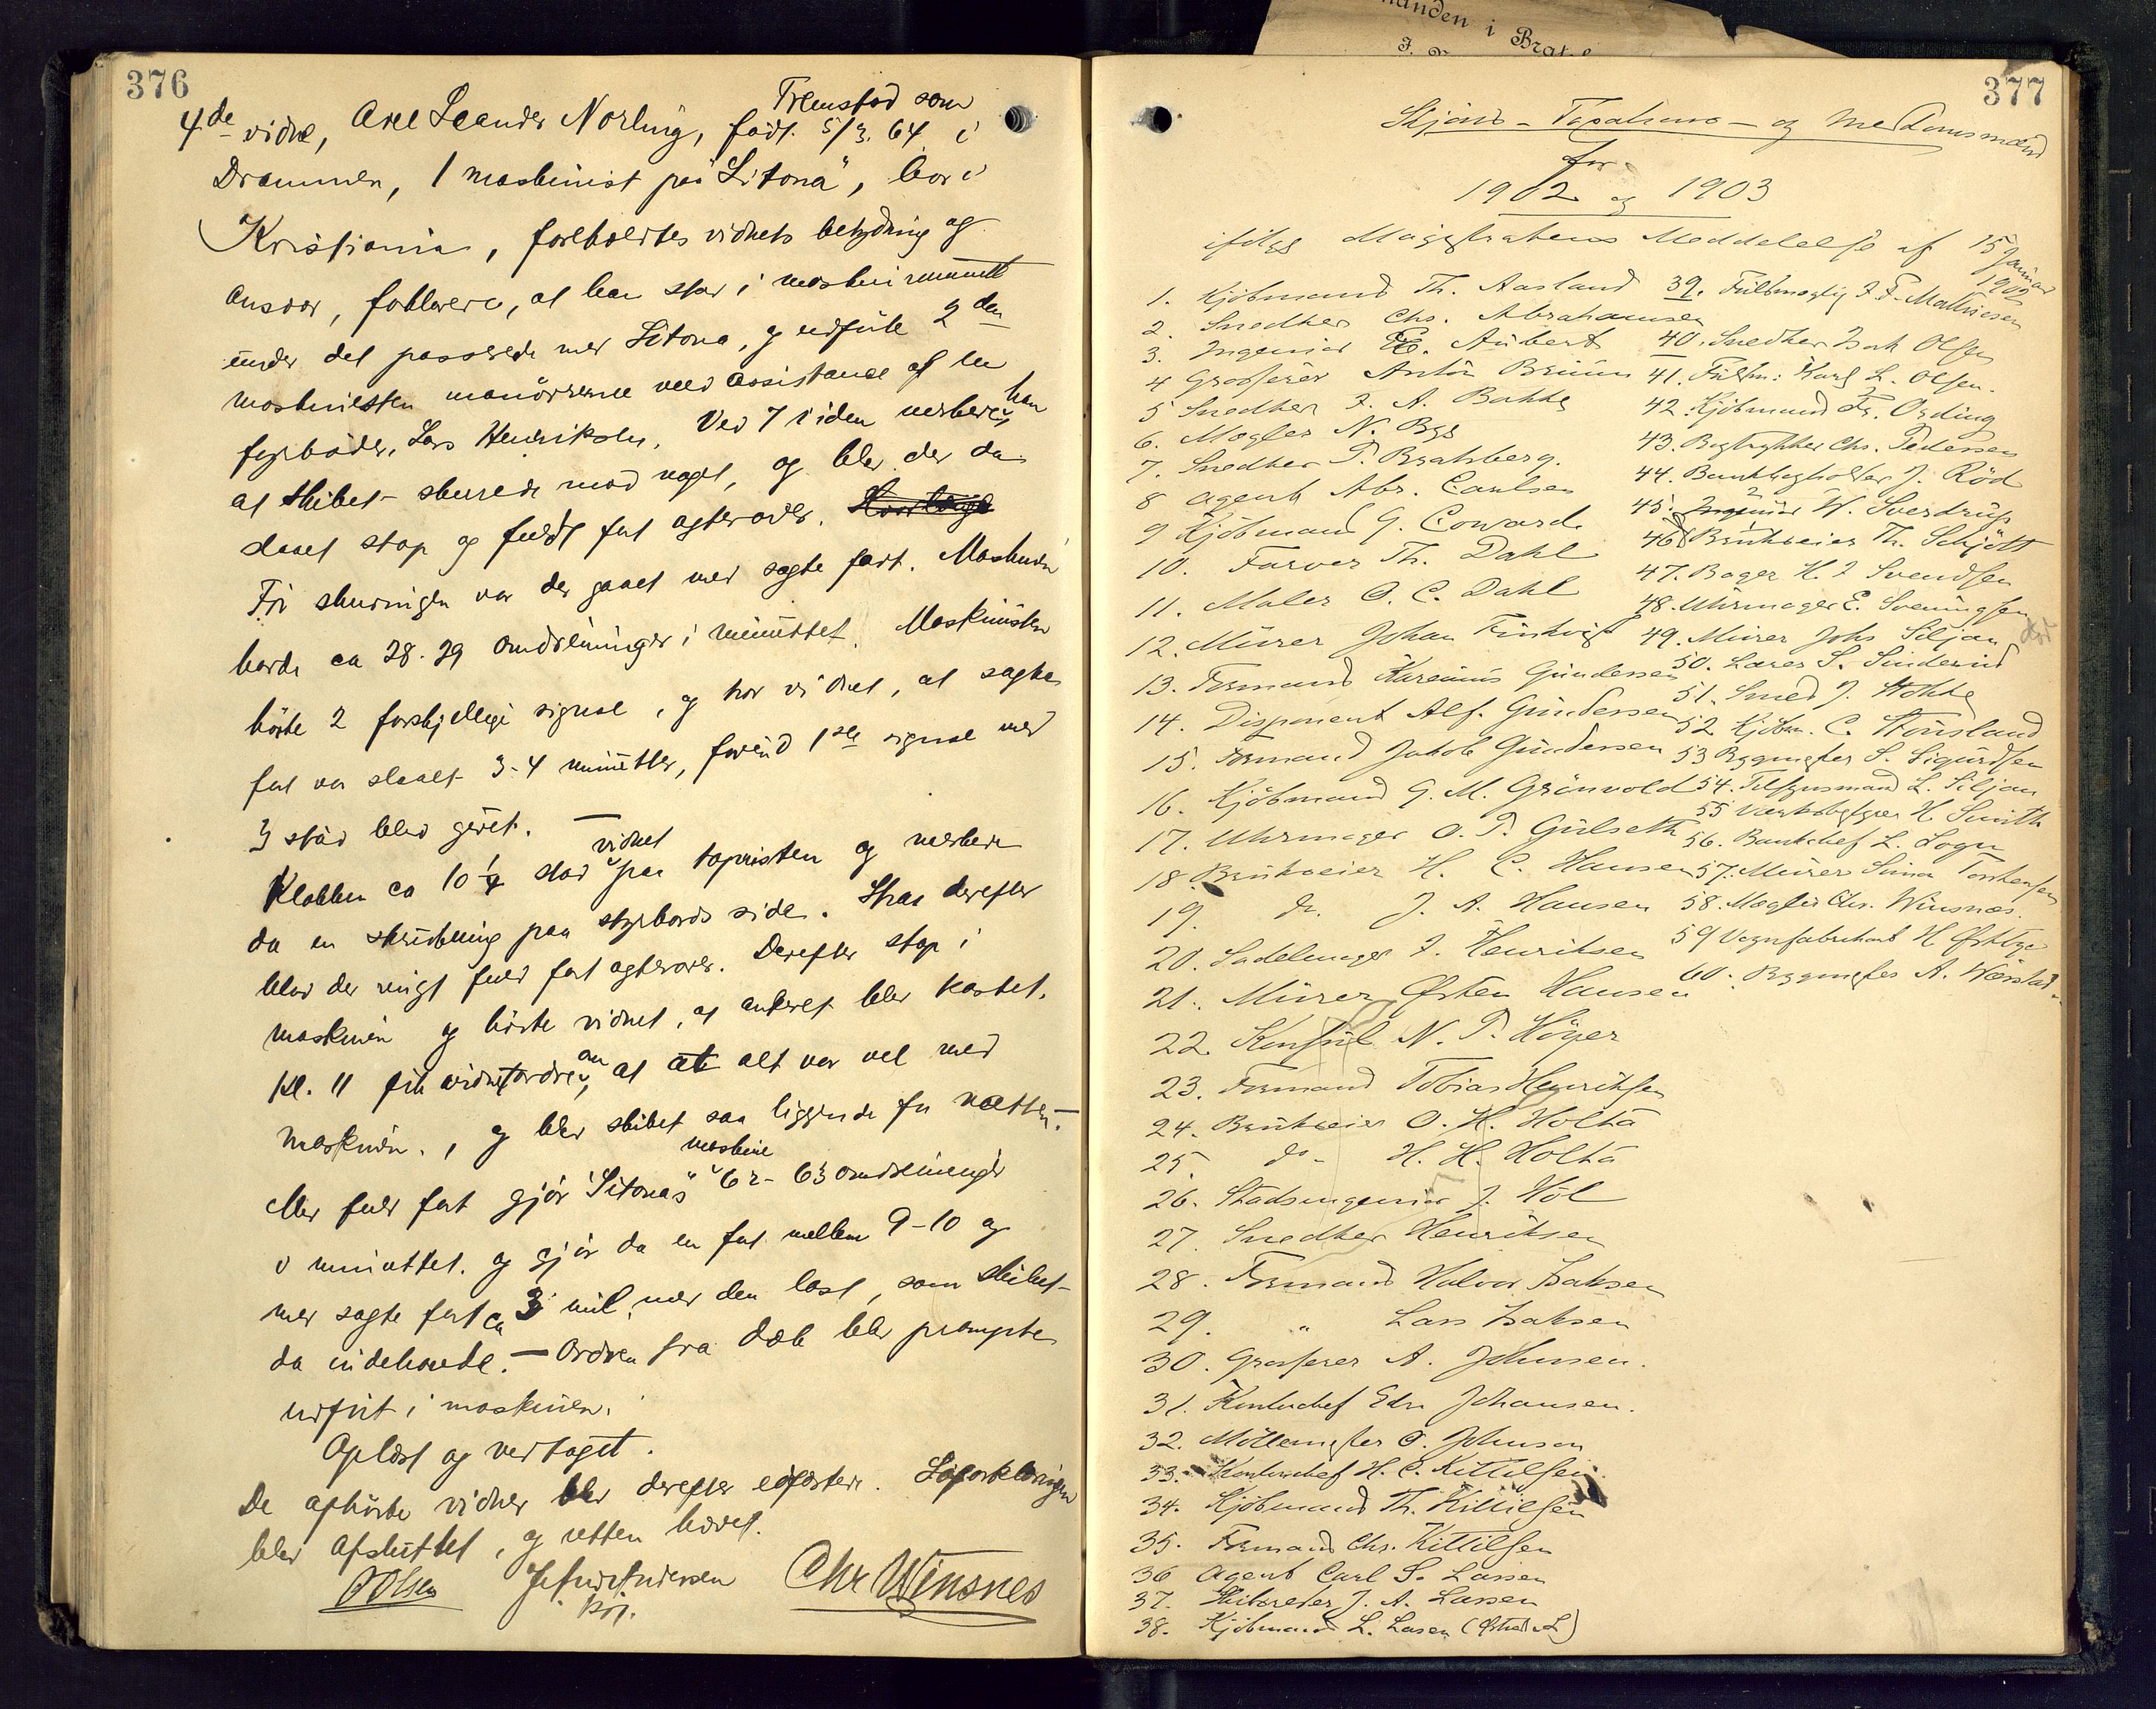 376
Fremstod som
4de vidne, Axel Leander Norling, født 5/3. 64 i
Drammen, 1 maskinist på "Sitona", bor i
Kristiania, foreholdtes vidnets betydning og
ansvar, forklarer, at han var i maskinrummet
under det passerede med Sitona, og udførte 2den
maskinisten manøvrerne med assistance af en
fyrbøder, Lars Henriksen. Ved 7 tiden merkede han
at skibet skurede mod noget, og blev der da
slaaet stop og fuld fart agterover.
Før skuringen var der gaaet med sagte fart. Maskinen
havde ca 28-29 omdreininger i minuttet. Maskinisten
hørte 2 forskjellige signal, og tror vidnet, at sagte
fart var slaaet 3-4 minutter, forend 1ste signal med
3 støt blev givet. —
Klokken ca 10 1/4 stod vidnet paa topristen og merkede
da en skrubning paa styrbords side. Strax derefter
blev der ringt fuld fart agterover. Derefter stop i
maskinen og hørte vidnet, at ankeret blev kastet.
Kl. 11 fik vidnet ordre om, at alt var vel med
maskinen, og blev skibet saa liggende for natten. —
Med fuld fart gjør "Sitonas" maskine 62-63 omdreininger
i minuttet. og gjør da en fart mellem 9-10 og
med sagte fart ca 3 mil, med den last, som skibet
da indehavde. — Ordren fra dæk blev prompte
udført i maskinen.
Oplæst og vedtaget.
De afhørte vidner blev derefter edfæstede. Søforklaringen
blev afsluttet, og retten hævet.
O Olsen Chr Winsnes
377
Skjøns- Taxations- og Meddomsmænd
for
1902 og 1903
ifølge Magistratens Meddelelse af 15 Januar 1902
1. Kjøbmand Th. Aasland
2. Snedker Chs. Abrahamsen
3. Ingeniør E. Aubert
4 Grosserer Anton Bruun
5 Snedker J. A. Bakke
6. Mægler N. Bye
7. Snedker P. Bratsberg.
8 Agent Abr. Carlsen
9 Kjøbmand G. Coward
10. Farver Th. Dahl
11. Maler O. C. Dahl
12. Murer Johan Finkvist
13. Formand Karenius Gundersen
14. Disponent Alf. Gundersen
15. Formand Jakob Gundersen
16. Kjøbmand G. M. Grönvold
17. Uhrmager O. P. Gulseth
18. Brukseier H. C. Hansen
19. do. J. A. Hansen
20. Sadelmager J. Henriksen
21. Murer Østen Hansen
22. Konsul N. P. Höyer
23. Formand Tobias Henriksen
24. Brukseier O. H. Holta
25. do - H. H. Holta
26. Stadsingeniør J. Hol
27. Snedker Henriksen
28. Formand Halvor Isaksen
29. " Lars Isaksen
30. Grosserer A. Johnsen.
31. Kontorchef Edv. Johansen.
32. Möllemester O. Johnsen
33. Kontorchef H. C. Kittilsen
34. Kjøbmand Th. Kittilsen
35. Formand Chr. Kittilsen
36 Agent Carl S. Larsen
37. Skibsreder J. A. Larsen
38. Kjøbmand L. Larsen
39. Fuldmægtig F. F. Mathiesen
40. Snedker Isak Olsen
41. Fuldm: Karl L. Olsen.
42. Kjøbmand Fr. Ording
43. Bogtrykker Chs. Pedersen
44. Bankbogholder J. Röd
45. Ingeniør W. Sverdrup
46 Brukseier Th. Schjött
47. Bager H. J Svendsen
48. Uhrmager E. Sveningsen
49. Murer Johs Siljan død
50. Lærer S. Sunderud
51. Smed J. Stokke
52. Kjøbm. C. Stousland
53 Bygmester S. Sigurdsen
54. Tilsynsmand L. Siljan
55 Værksbestyrer H. Smith
56. Bankchef L. Sogn
57. Murer Simon Torkensen
58. Mægler Chr. Winsnæs.
59 Vognfabrikant H Østbye
60. Bygmester A. Wærstad